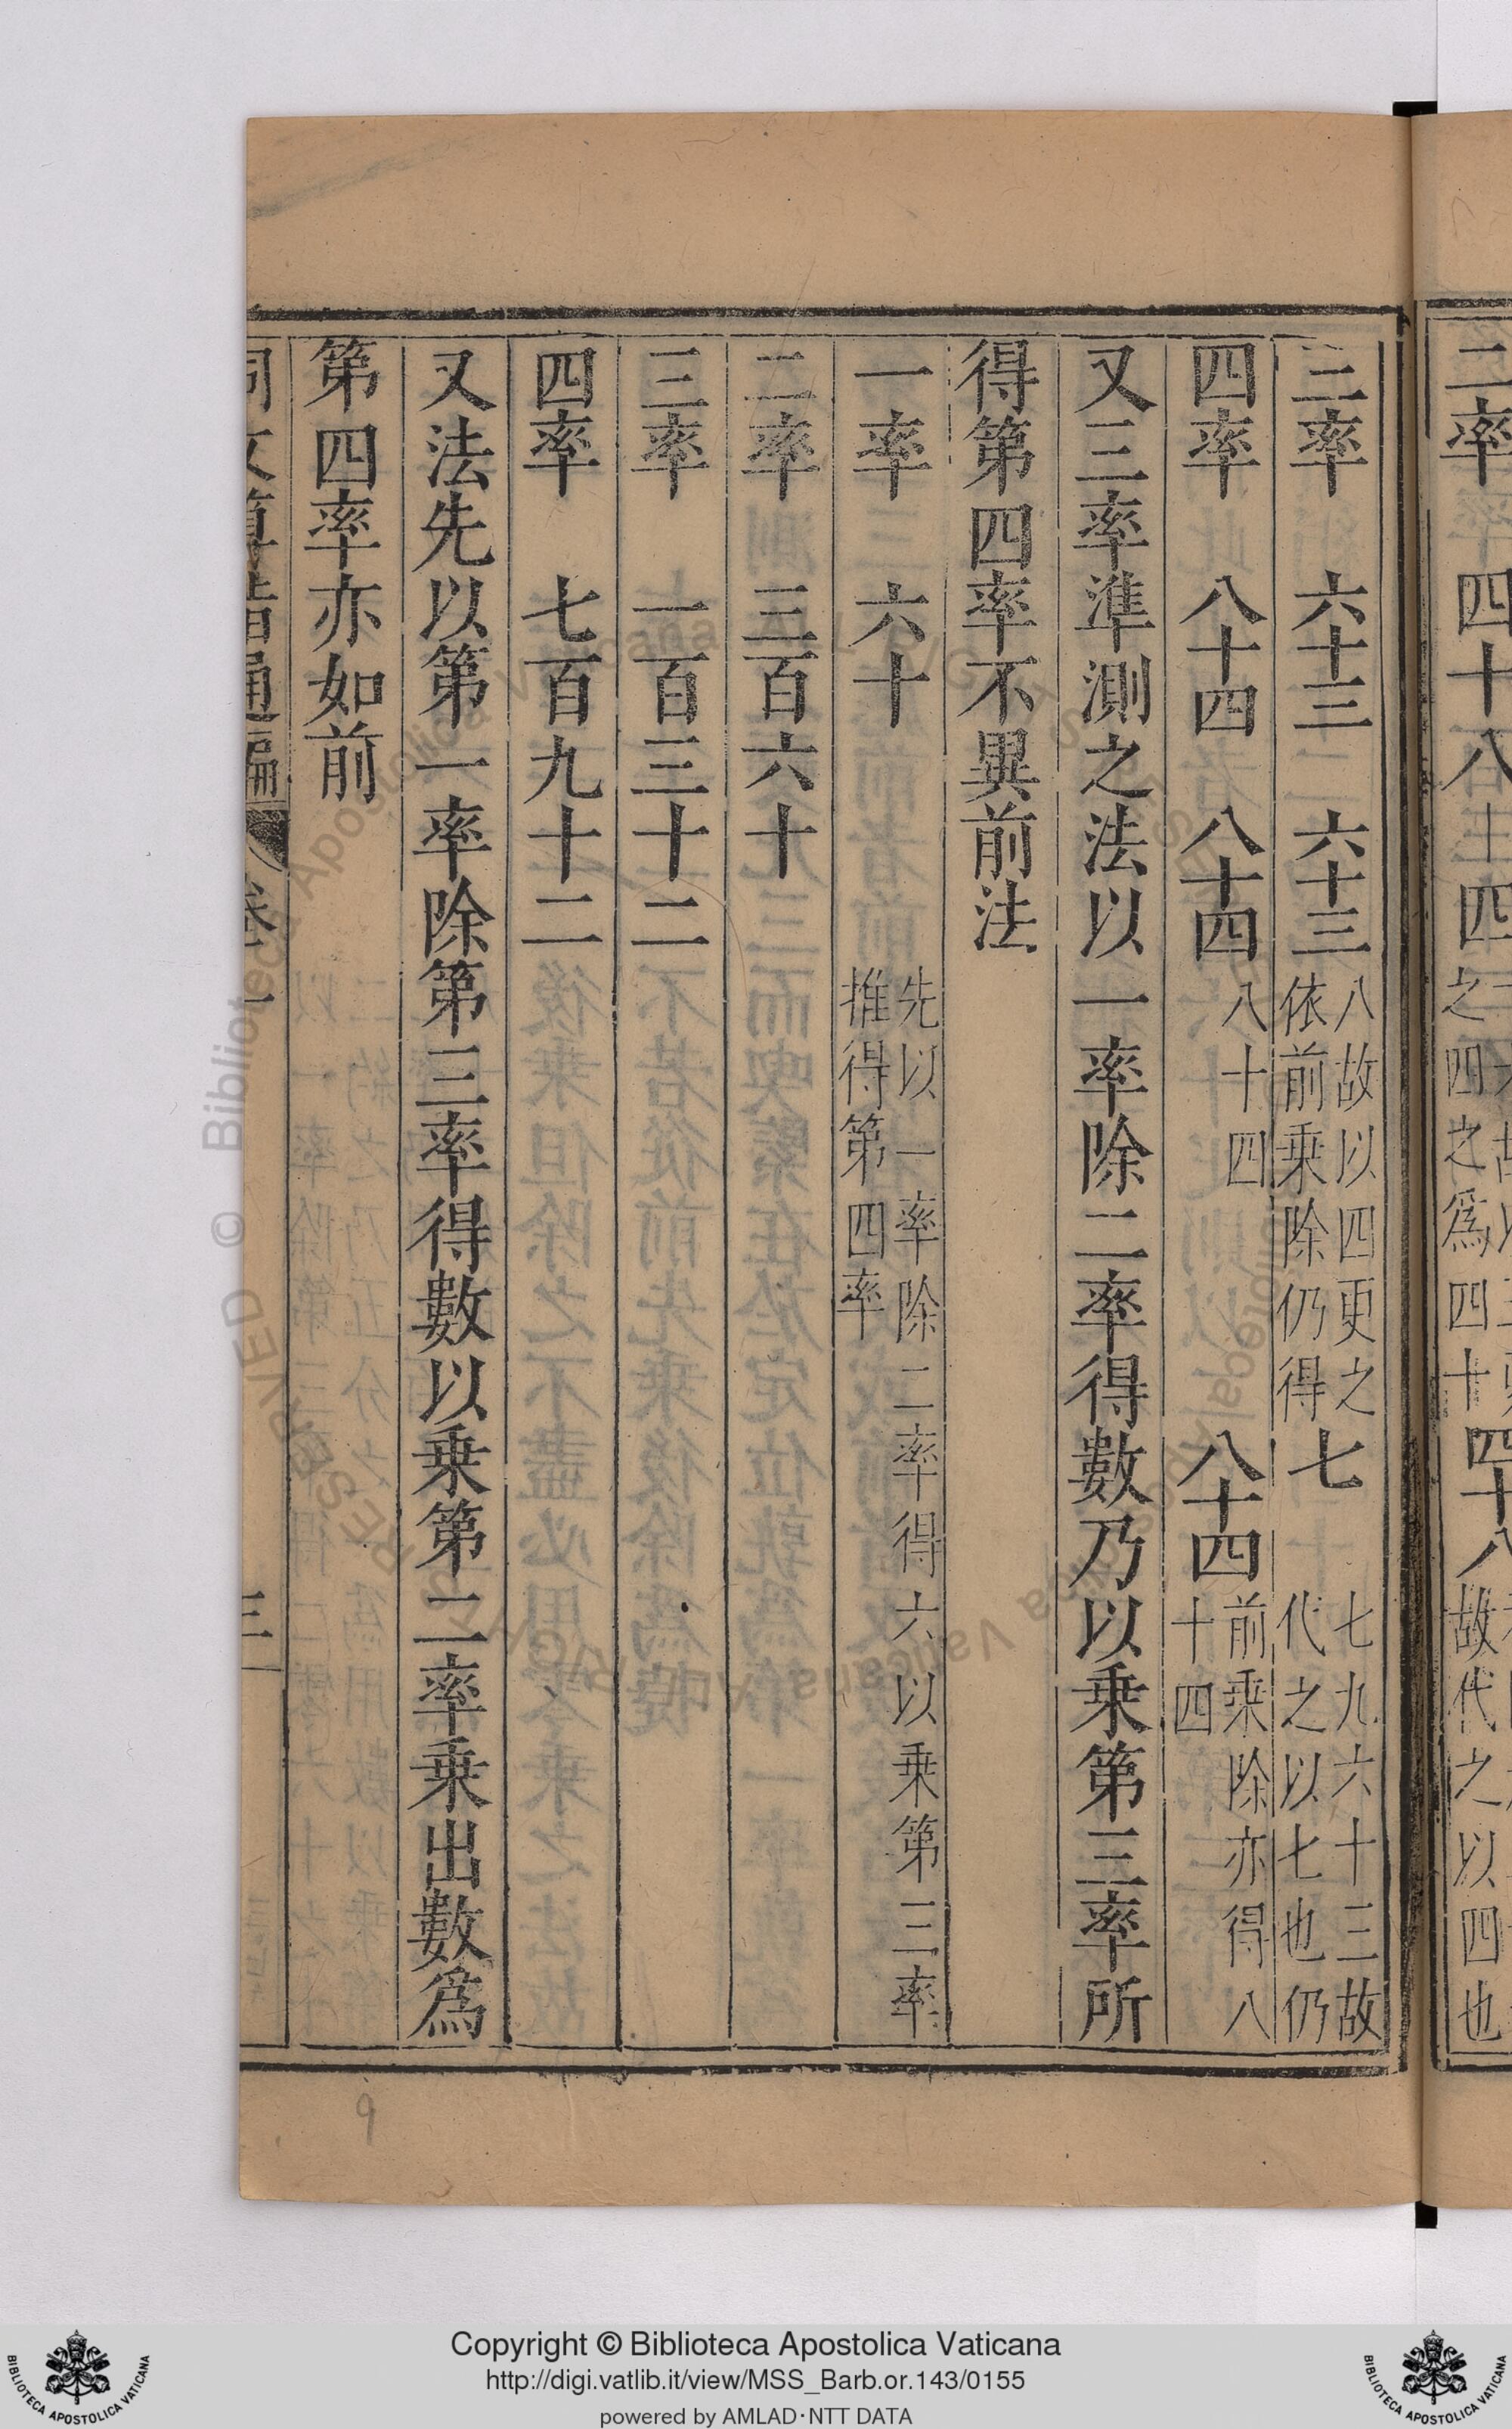 二率 四十八 四
之四之爲四十
四十八
故代之以四也
三率 六十三 六十三
八故以四更之
依前乗除仍得
七
七九六十三故
代之以七也仍
四率 八十四 八十四
八十四
八十四
前乗除亦得八
十四
又三率準測之法以一率除二率得數乃以乗第三率所
得第四率不異前法
一率 六十
先以一率除二率得六以乗第三率
推得第四率
二率 三百六十
三率 一百三十二
四率 七百九十二
又法先以第一率除第三率得數以乗第二率乗出數爲
第四率亦如前
同文算指通編 卷一 三
9
Copyright © Biblioteca Apostolica Vaticana
http://digi.vatlib.it/view/MSS_Barb.or.143/0155
powered by AMLAD·NTT DATA
BIBLIOTECA APOSTOLICA VATICANA
BIBLIOTECA APOSTOLICA VATICANA